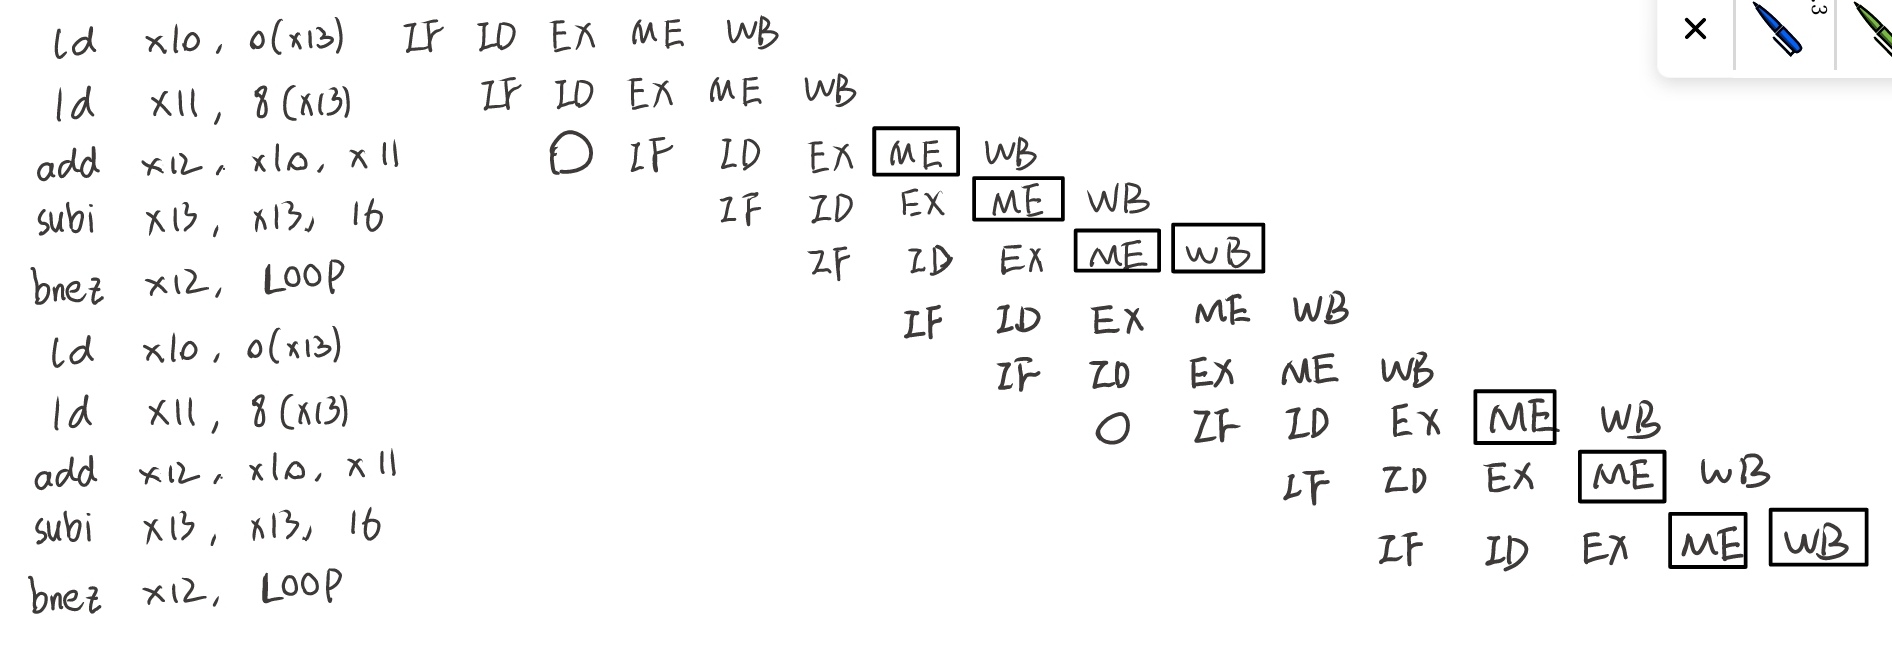 ld x10, 0(x13) IF ID EX ME WB
ld x11, 8(x13) IF ID EX ME WB
add x12, x10, x11 O IF ID EX ME WB
subi x13, x13, 16 IF ID EX ME WB
bnez x12, LOOP IF ID EX ME WB
ld x10, 0(x13) IF ID EX ME WB
ld x11, 8(x13) IF ID EX ME WB
add x12, x10, x11 O IF ID EX ME WB
subi x13, x13, 16 IF ID EX ME WB
bnez x12, LOOP IF ID EX ME WB
.3